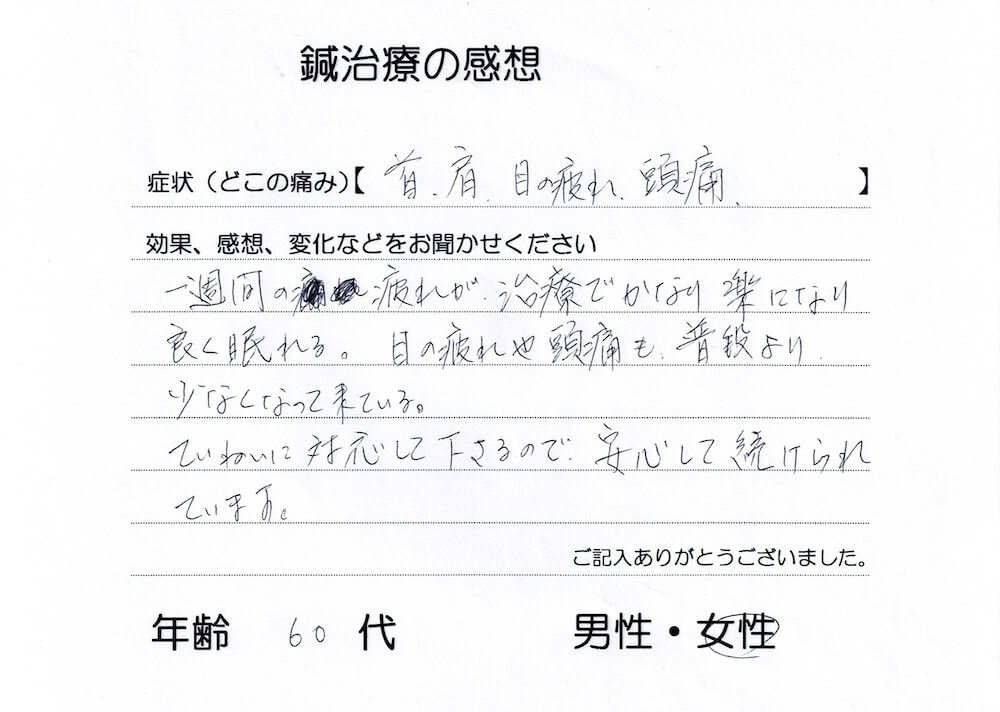 鍼治療の感想
症状（どこの痛み）【 首、肩、目の疲れ、頭痛、 】
効果、感想、変化などをお聞かせください
一週間の疲れが、治療でかなり楽になり
良く眠れる。 目の疲れや頭痛も、普段より、
少なくなって来ている。
ていねいに対応して下さるので、安心して続けられ
ています。
ご記入ありがとうございました。
年齢 60 代 男性・女性